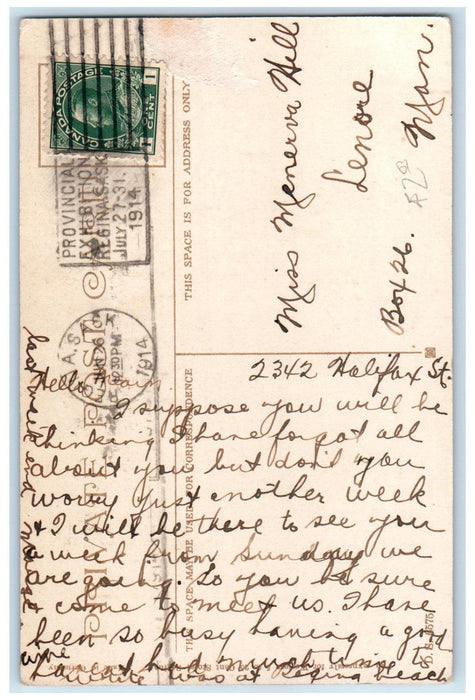 CANADA POSTAGE
1 CENT 1
PROVINCIAL
EXHIBITION
REGINA SASK
JULY 27-31.
1914
1230 PM
1914
THIS SPACE IS FOR ADDRESS ONLY
Miss Menerva Hill
Lenore
Box 26. Man.
THE SPACE MAY BE USED FOR CORRESPONDENCE
2342 Halifax St.
Hello
I suppose you will be
thinking I have forgot all
about you but don't you
worry just another week
& I will be there to see you
a week from Sunday we
are going. So you be sure
& come to meet us. I have
been so busy having a good
time I hadn't time to
write was at Regina beach
last week end